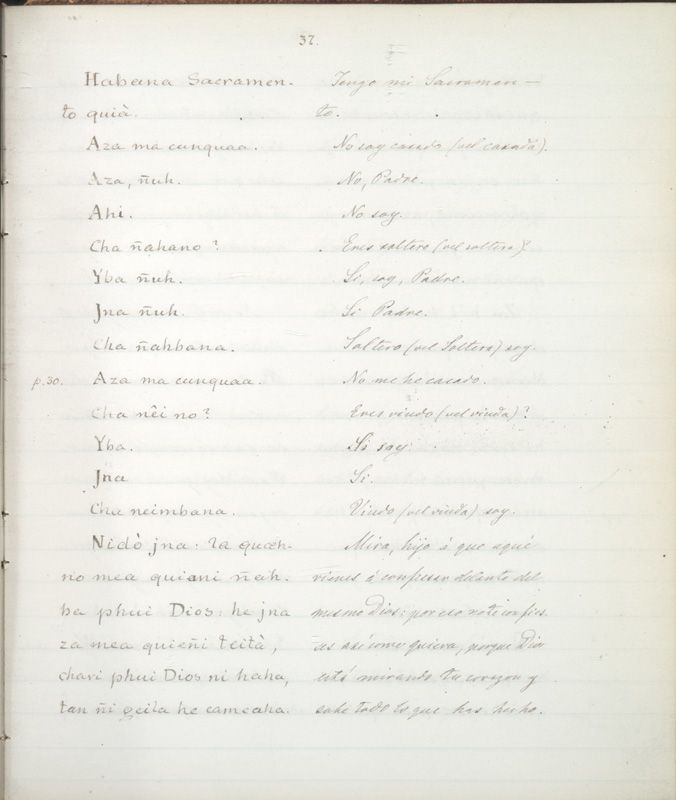 37.
Habana Sacramen- Tengo mi Sacramen-
to quià. to.
Aza ma cunquaa. No soy casado (vel casada).
Aza, ñuh. No, Padre.
Ahi. No soy.
Cha ñahano? Eres soltero (vel soltera)?
Yba ñuh. Si, soy, Padre.
Jna ñuh. Si Padre.
Cha ñahbana. Soltero (vel Soltera) soy.
p.30. Aza ma cunquaa. No me he casado.
Cha nêi no? Eres viudo (vel viuda)?
Yba. Si soy.
Jna Si.
Cha neimbana. Viudo (vel viuda) soy.
Nidò jna: la quæh- Mira, hijo á que aqué
no mea quiani ñah. vienes á confesar delante del
ba phui Dios: he jna mismo Dios: por eso no te confies
za mea quieñi teità, as asi como quiera, porque Dios
chavi phui Dios ni haha, está mirando tu corazon y
tan ñi ceila he cameaha. sabe todo lo que has hecho.